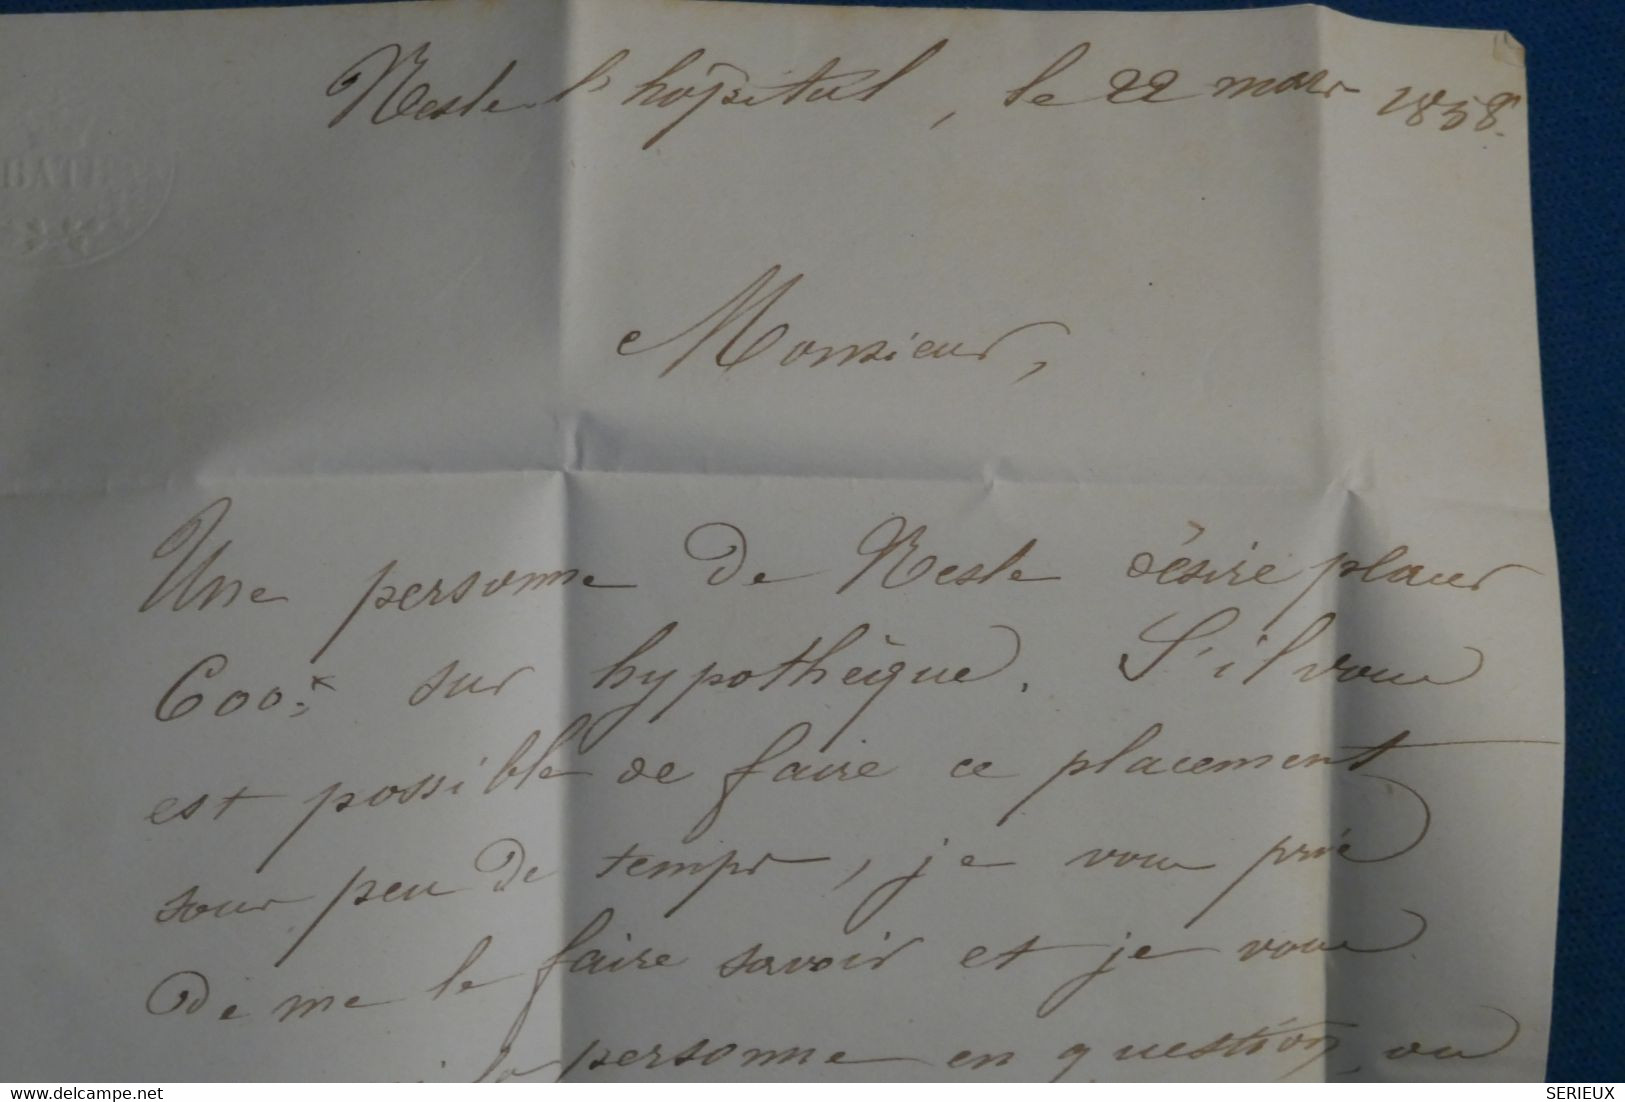 Nesle l'hôpital, le 22 mars 1858.
Monsieur,
Une personne de Nesle désire placer
600f sur hypothèque. S'il vous
est possible de faire ce placement
sous peu de temps, je vous prie
de me le faire savoir et je vous
la personne en question, ou
www.delcampe.net
SERIEUX